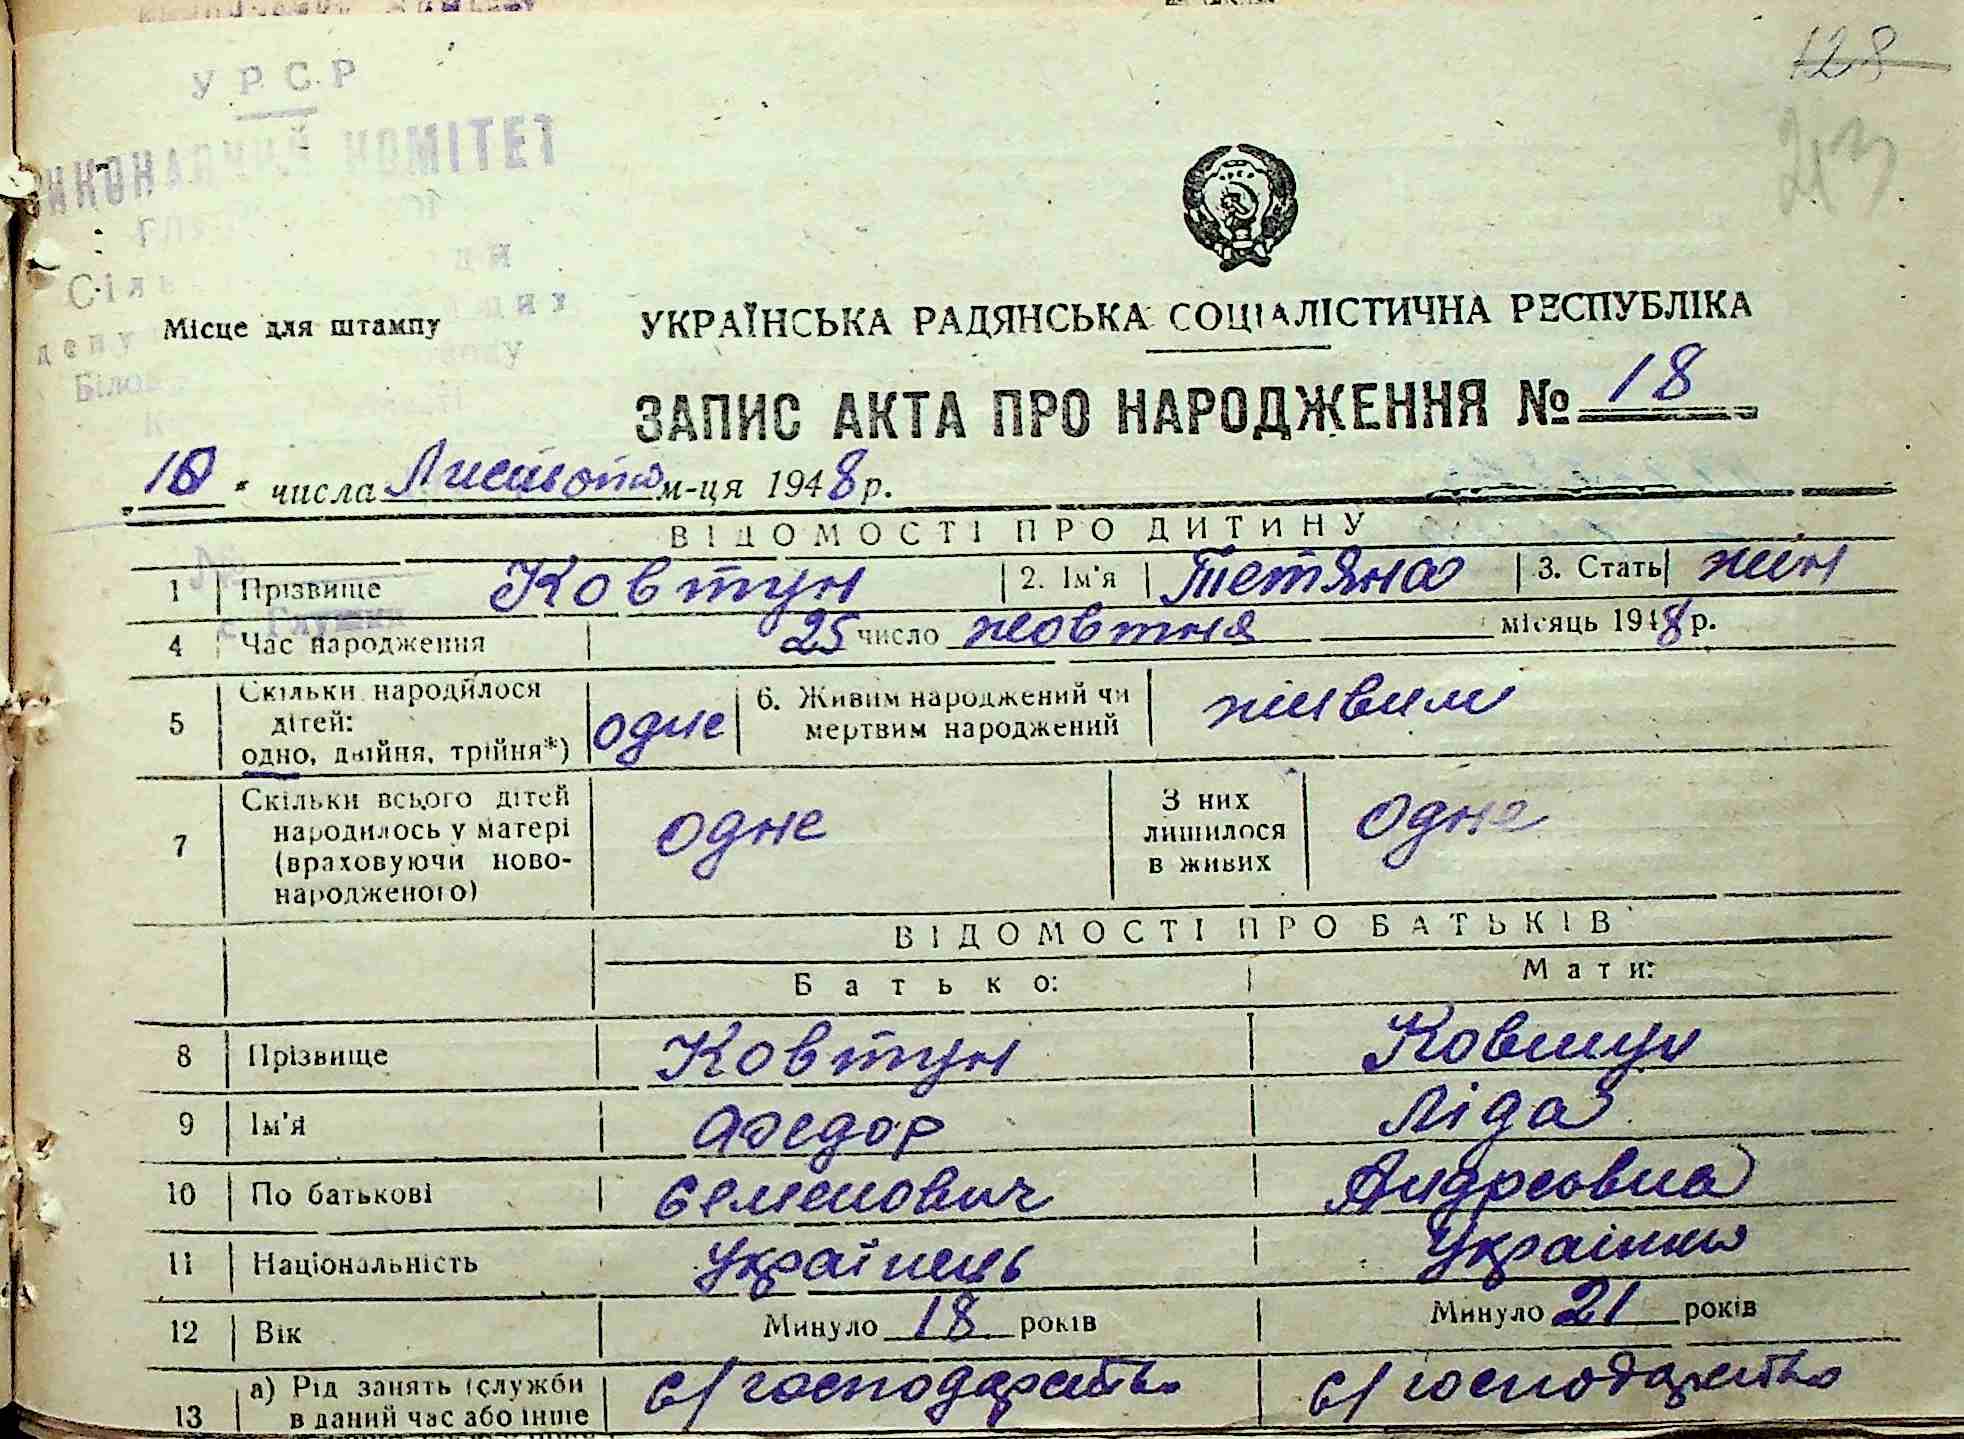 128
213
У Р С Р
ВИКОНАВЧИЙ КОМІТЕТ
Місце для штампу
УКРАЇНСЬКА РАДЯНСЬКА СОЦІАЛІСТИЧНА РЕСПУБЛІКА
ЗАПИС АКТА ПРО НАРОДЖЕННЯ № 18
числа Листопада м-ця 1948 р.
ВІДОМОСТІ ПРО ДИТИНУ
1 Прізвище Ковтун 2. Ім'я Тетяна 3. Стать жін
с. Глушки
4 Час народження 25 число жовтня місяць 1948 р.
5 Скільки народилося дітей: одно, двійня, трійня*) одне 6. Живим народжений чи мертвим народжений живим
7 Скільки всього дітей народилось у матері (враховуючи новонародженого) одне З них лишилося в живих одне
ВІДОМОСТІ ПРО БАТЬКІВ
Батько: Мати:
8 Прізвище Ковтун Ковтун
9 Ім'я Федор Ліда
10 По батькові Семенович Андреовна
11 Національність Українець Українка
12 Вік Минуло 18 років Минуло 21 років
13 а) Рід занять (служби в даний час або інше с/господарство с/господарство